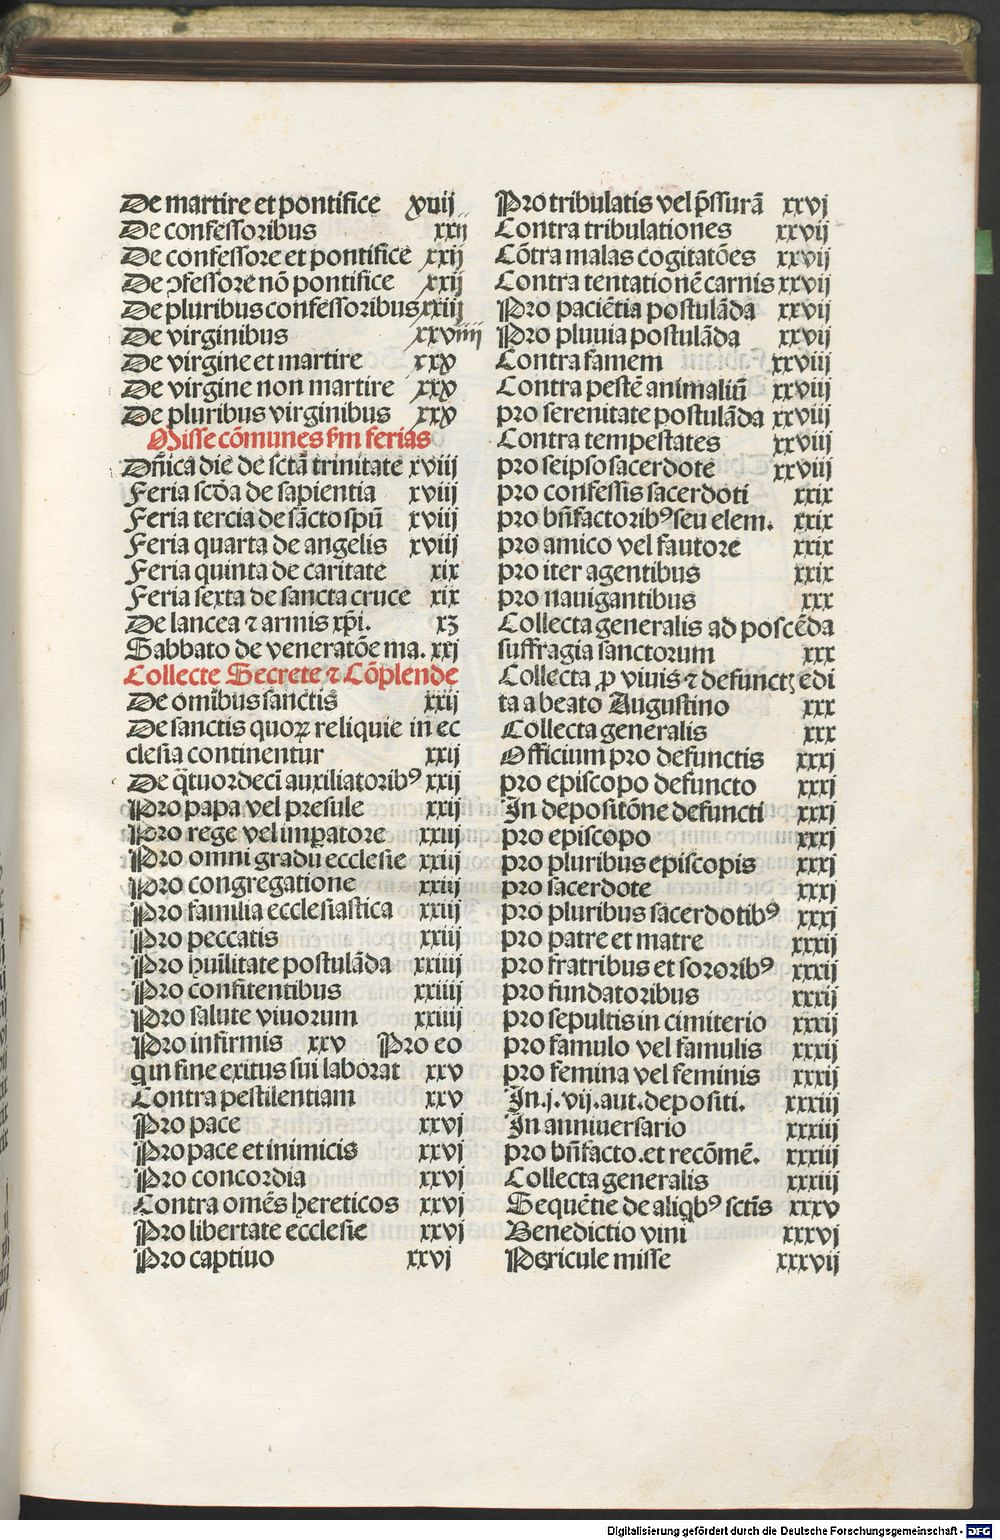 De martire et pontifice xviij
De confessoribus xxij
De confessore et pontifice xxij
De ↄfessore nō pontifice xxij
De pluribus confessoribus xxiij
De virginibus xxviiij
De virgine et martire xxx
De virgine non martire xxx
De pluribus virginibus xxx
Misse cōmunes ẜm ferias
Dn̄ica die de sctā trinitate xviij
Feria scd̄a de sapientia xviij
Feria tercia de sācto spū xviij
Feria quarta de angelis xviij
Feria quinta de caritate xix
Feria sexta de sancta cruce xix
De lancea ⁊ armis xp̄i. xʒ
Sabbato de veneratōe ma. xxj
Collecte Secrete ⁊ Cōplende
De omībus sanctis xxij
De sanctis quoꝝ reliquie in ec
clesia continentur xxij
De q̄tuordecī auxiliatoribꝰ xxij
Pro papa vel presule xxij
Pro rege vel imꝑatore xxiij
Pro omni gradu ecclesie xxiij
Pro congregatione xxiij
Pro familia ecclesiastica xxiij
Pro peccatis xxiij
Pro humīlitate postulāda xxiiij
Pro confitentibus xxiiij
Pro salute viuorum xxiiij
Pro infirmis xxv Pro eo
qui in fine exitus sui laborat xxv
Contra pestilentiam xxv
Pro pace xxvj
Pro pace et inimicis xxvj
Pro concordia xxvj
Contra omēs hereticos xxvj
Pro libertate ecclesie xxvj
Pro captiuo xxvj
Pro tribulatis vel p̄ssurā xxvj
Contra tribulationes xxvij
Cōtra malas cogitatōes xxvij
Contra tentationē carnis xxvij
Pro paciētia postulāda xxvij
Pro pluuia postulāda xxvij
Contra famem xxviij
Contra pestē animaliū xxviij
pro serenitate postulāda xxviij
Contra tempestates xxviij
pro seipso sacerdote xxviij
pro confessis sacerdoti xxix
pro bn̄factoribꝰ seu elem. xxix
pro amico vel fautore xxix
pro iter agentibus xxix
pro nauigantibus xxx
Collecta generalis ad poscēda
suffragia sanctorum xxx
Collecta ꝓ viuis ⁊ defunctꝭ edi
ta a beato Augustino xxx
Collecta generalis xxx
Officium pro defunctis xxxj
pro episcopo defuncto xxxj
In depositōne defuncti xxxj
pro episcopo xxxj
pro pluribus episcopis xxxj
pro sacerdote xxxj
pro pluribus sacerdotibꝰ xxxj
pro patre et matre xxxij
pro fratribus et sororibꝰ xxxij
pro fundatoribus xxxij
pro sepultis in cimiterio xxxij
pro famulo vel famulis xxxij
pro femina vel feminis xxxij
In .j. vij. aut. depositi. xxxiij
In anniuersario xxxiij
pro bn̄facto. et recōmē. xxxiij
Collecta generalis xxxiij
Sequētie de aliqbꝰ sctīs xxxv
Benedictio vini xxxvj
Pericule misse xxxvij
Digitalisierung gefördert durch die Deutsche Forschungsgemeinschaft - DFG